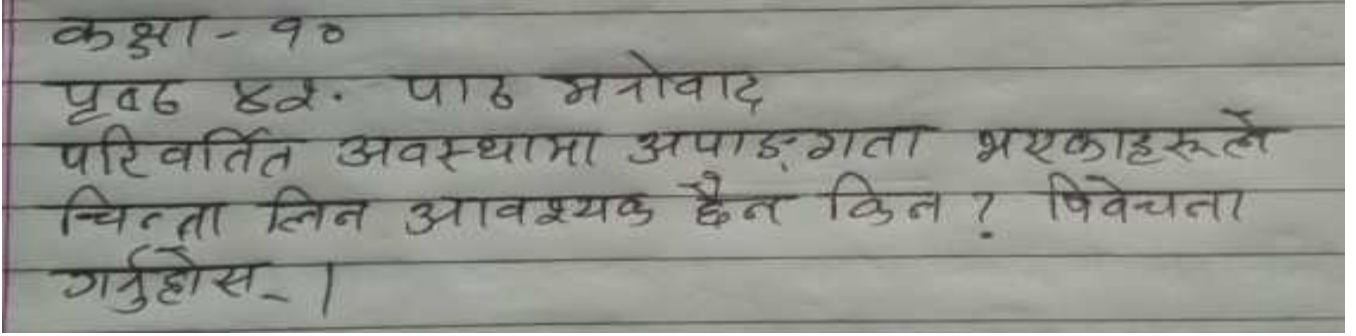 कक्षा - १०
पृष्ठ ४२. पाठ मनोवाद
परिवर्तित अवस्थामा अपाङ्गता भएकाहरूले
चिन्ता लिन आवश्यक छैन किन? विवेचना
गर्नुहोस् ।